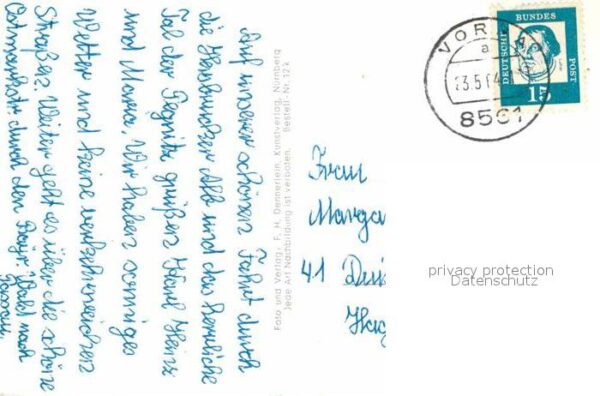 Auf unserer schönen Fahrt durch
die Hersbrucker Alb und das herrliche
Tal der Pegnitz grüßen Karl Heinz
und Maria. Wir haben sonniges
Wetter und keine verkehrsreichen
Straßen. Weiter geht es über die schöne
Ostmarkstr. durch den Bayr. Wald nach
Passau.
Foto und Verlag: F. H. Dennerlein, Kunstverlag, Nürnberg
Jede Art Nachbildung ist verboten. Bestell-Nr. 12 k
VOR
a
23.5.64
8561
DEUTSCHE BUNDES POST
15
Frau
Marga
41 Duis
privacy protection
Datenschutz